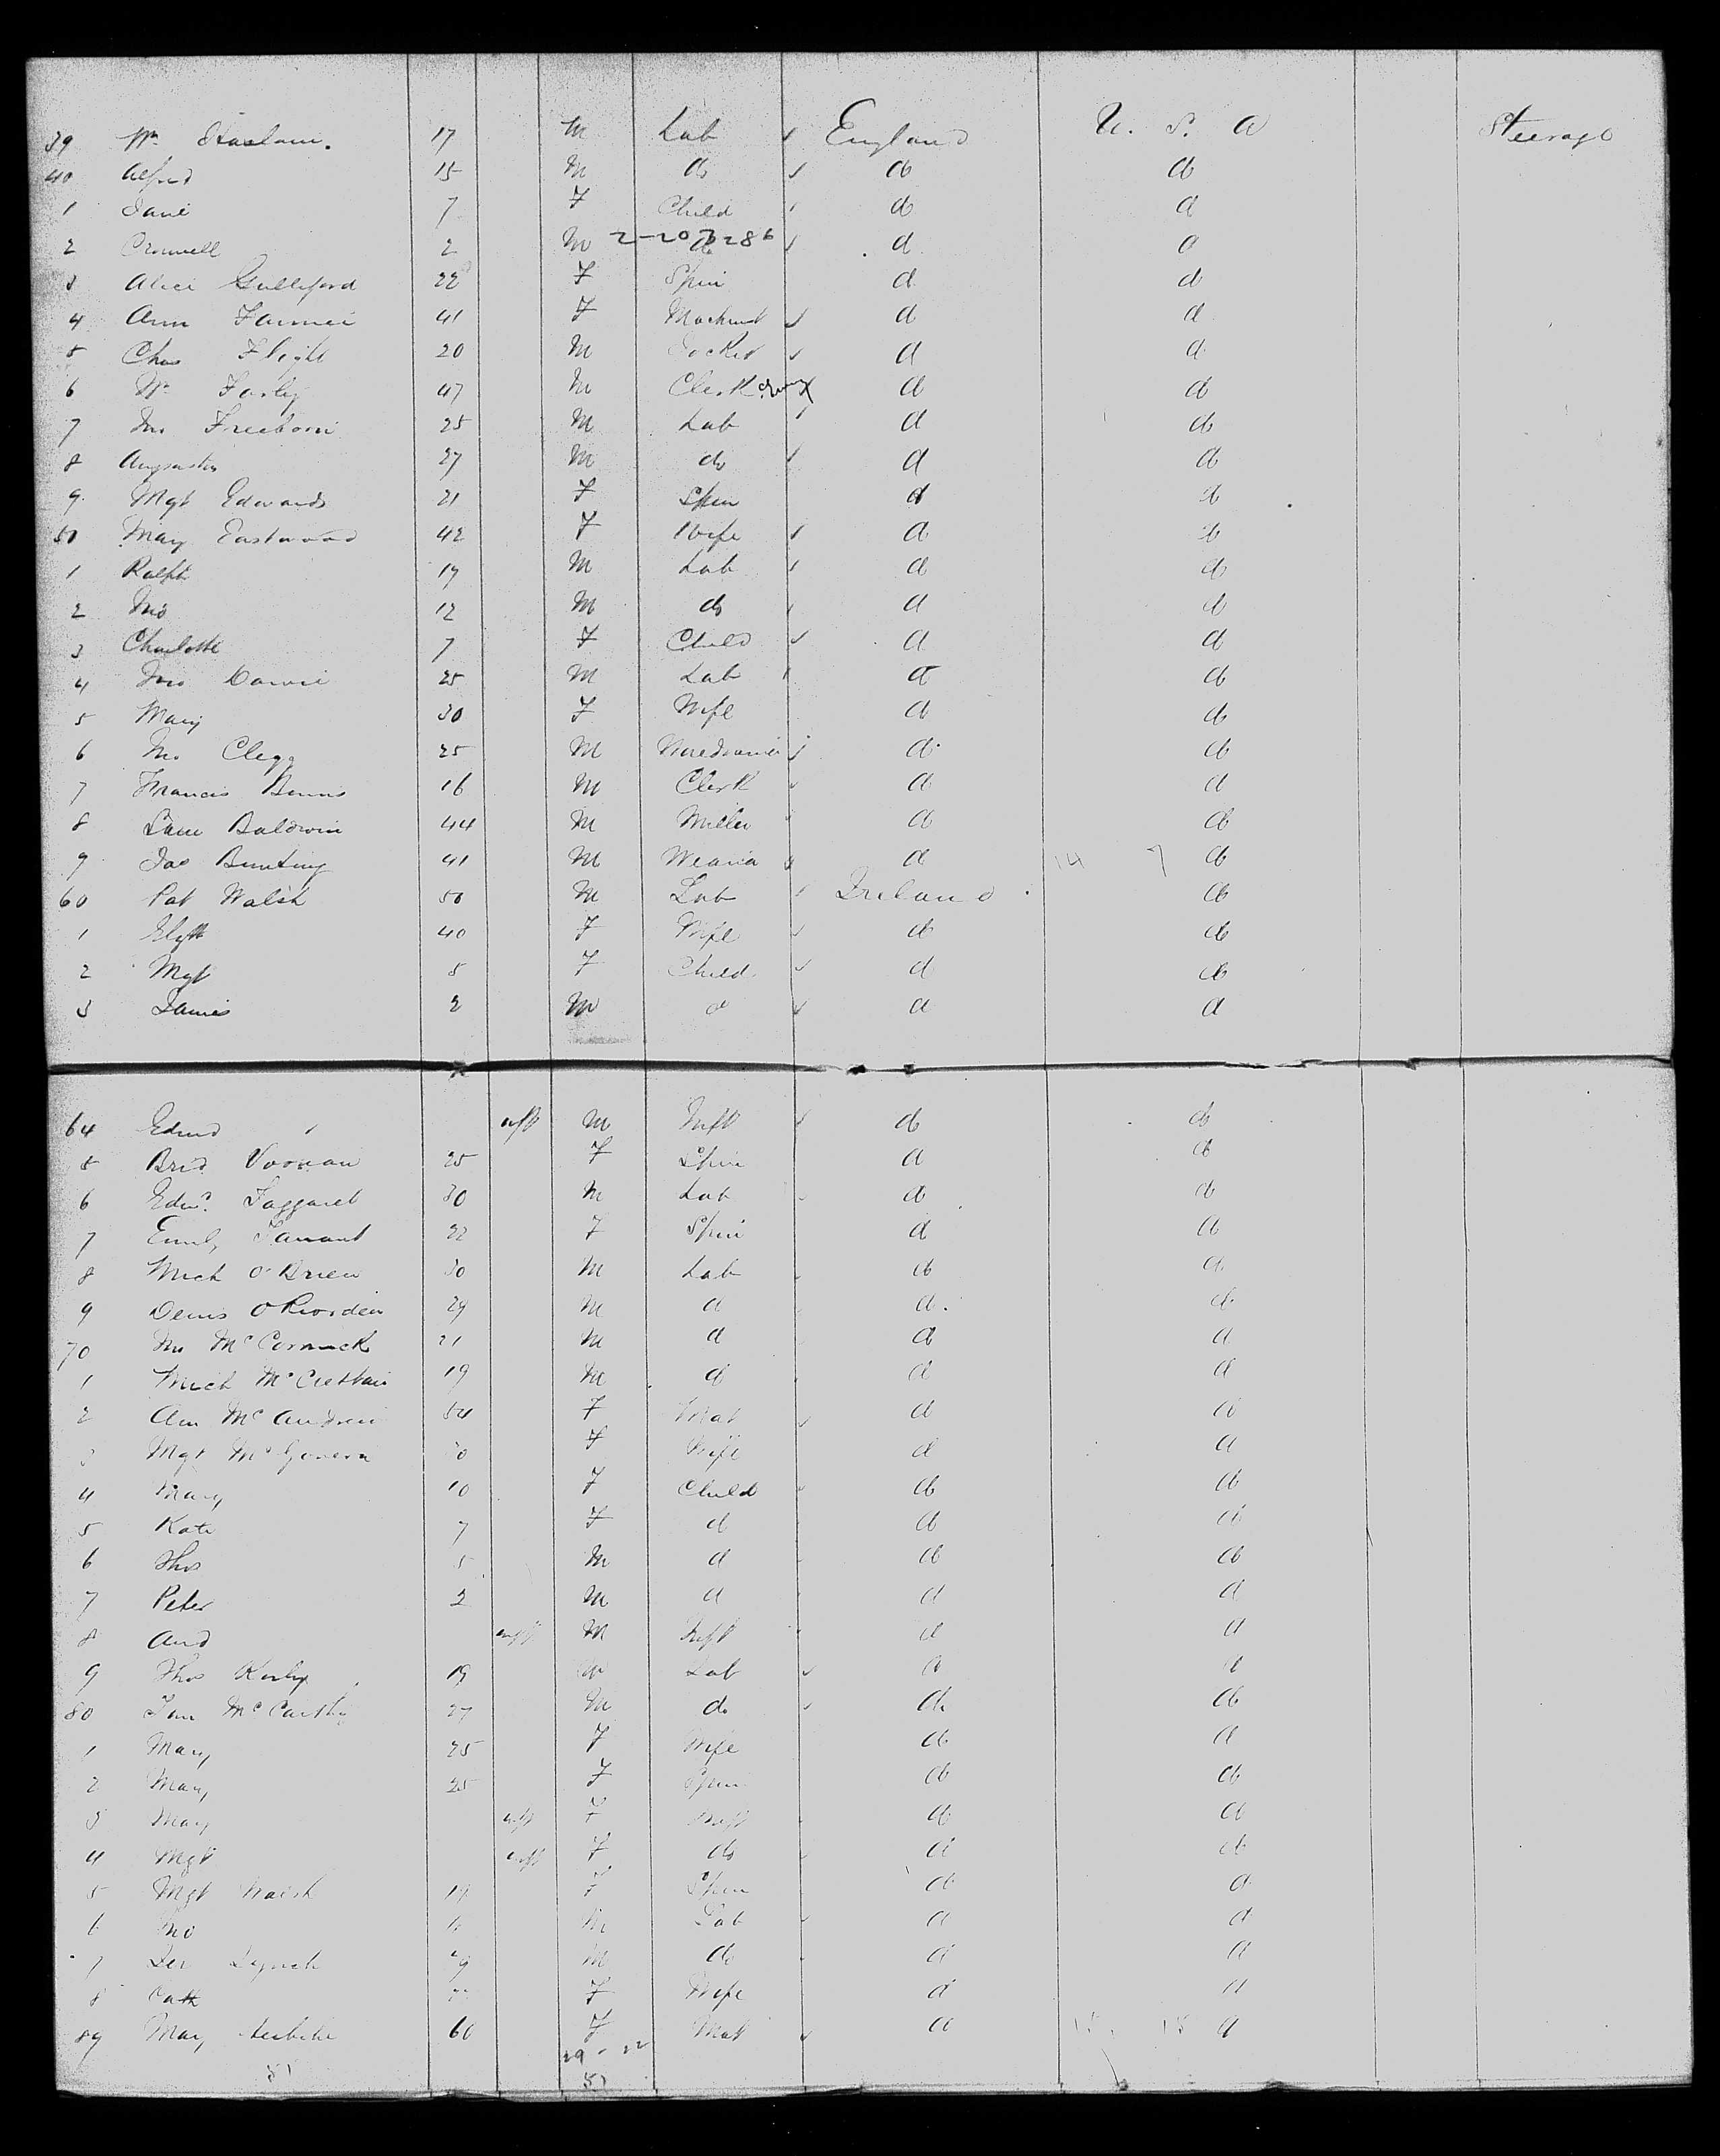 39 Wm Haslam. 17 M Lab England U. S. A Steerage
40 Alfred 15 M do do do
1 Jane 7 F Child do d
2 Cromwell 2 M 2-203286 do d d
3 Alice Gulliford 22 F Spin d do
4 Ann 41 F Machinist d d
5 Chas Flight 20 M d d
6 Wm Farley 47 M Clerk d do
7 Jno Freeborn 25 M Lab d do
8 Augustus 27 M do d do
9 Mgt Edwards 21 F Spin d do
50 Mary Eastwood 42 F Wife d do
1 Ralph 19 M Lab d do
2 Jno 12 M do d do
3 Charlotte 7 F Child d do
4 Jno 25 M Lab d do
5 Mary 30 F Wife d do
6 Jno Clegg 25 M d do
7 Francis 16 M Clerk d d
8 Sam Baldwin 44 M Miller d do
9 Jas Bunting 41 M d 14 7 do
60 Pat Walsh 50 M Lab Ireland do
1 40 F Wife do do
2 Mgt 5 F Child d do
3 James 2 M d d d
64 Edmd M Inft do do
5 Brid 25 F Spin d do
6 Edwd 30 M Lab do do
7 Emily 22 F Spin d do
8 Mich O'Brien 30 M Lab do d
9 Denis O'Riorden 29 M d d. do
70 Jno McCormack 21 M d d d
1 Mich 19 M d d d
2 Ann McAndrew 54 F Mat d do
3 Mgt McGovern 30 F Wife d d
4 Mary 10 F Child do do
5 Kate 7 F d do d
6 Thos 5 M d do do
7 Peter 2 M d d d
8 And M Inft d d
9 Thos 19 M Lab d d
80 McCarthy 27 M do do do
1 Mary 25 F Wife do d
2 Mary 25 F Spin do do
3 Mary F Inft do do
4 Mgt F do d do
5 Mgt Walsh 19 F Spin do d
6 Jno M Lab d d
7 Lynch M do d d
8 Cath F Wife d d
89 Mary 60 F Mat d 15. 15 d
29 - 22
51 51